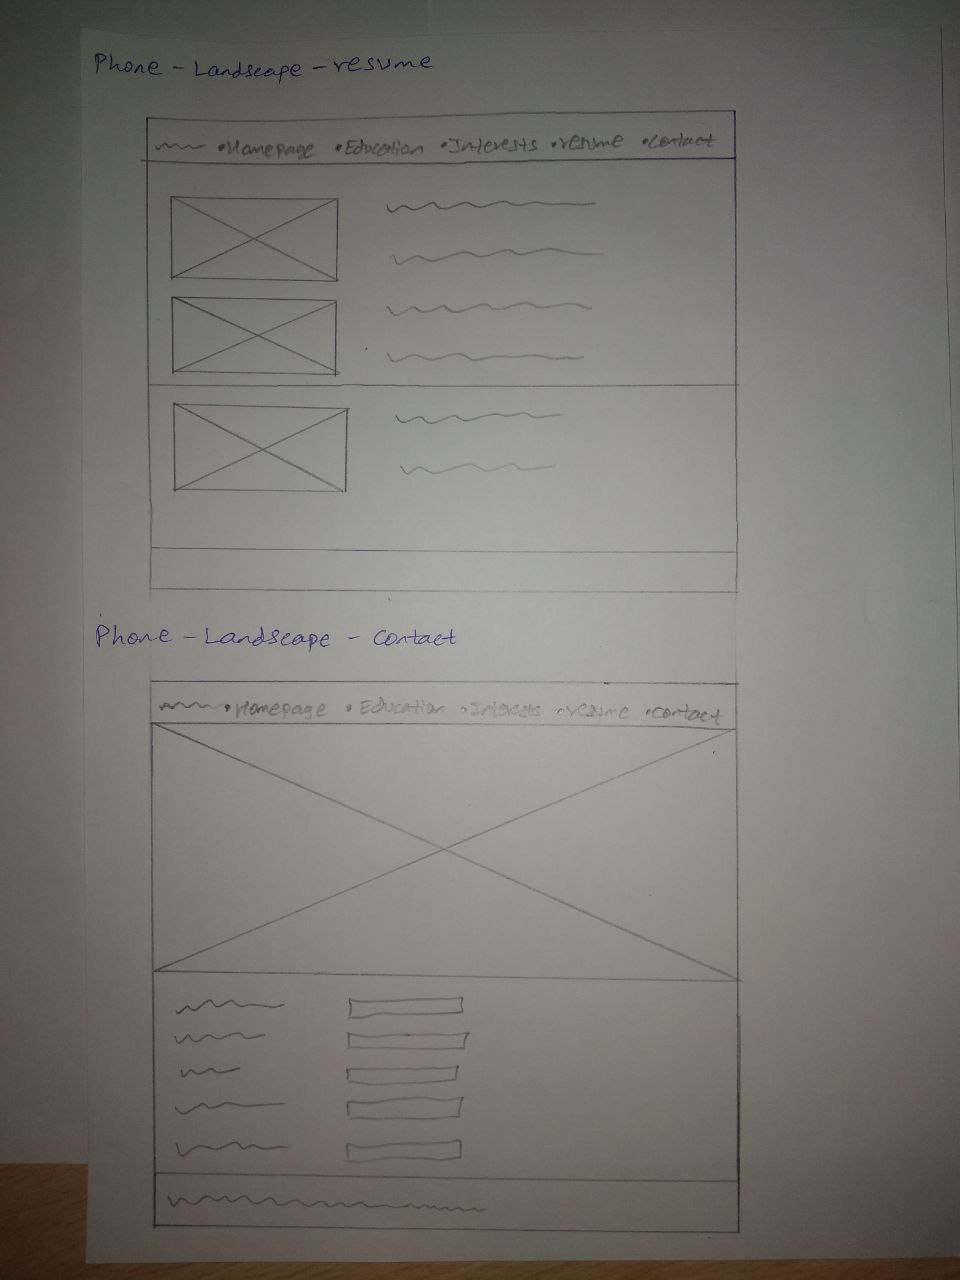 Phone - Landscape - resume
•Homepage •Education •Interests •resume •contact
Phone - Landscape - contact
•Homepage •Education •Interests •resume •contact